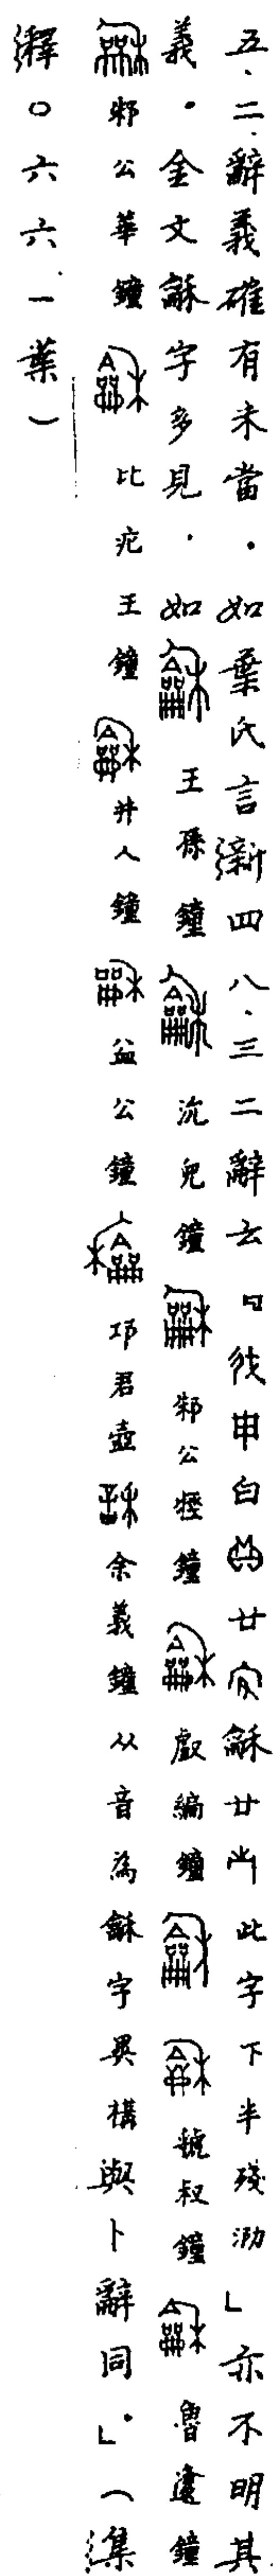 五、二辭義確有未當．如葉氏言湔四八．三二辭云「我申白廿㝃龢廿此字下半殘泐」亦不明其
義．金文龢字多見．如王孫鐘沇兒鐘邾公牼鐘𠭯編鐘虢叔鐘魯邍鐘
邾公華鐘王鐘井人鐘益公鐘邛君壺余義鐘从音為龢字異構與卜辭同。」（集
釋〇六六一葉）